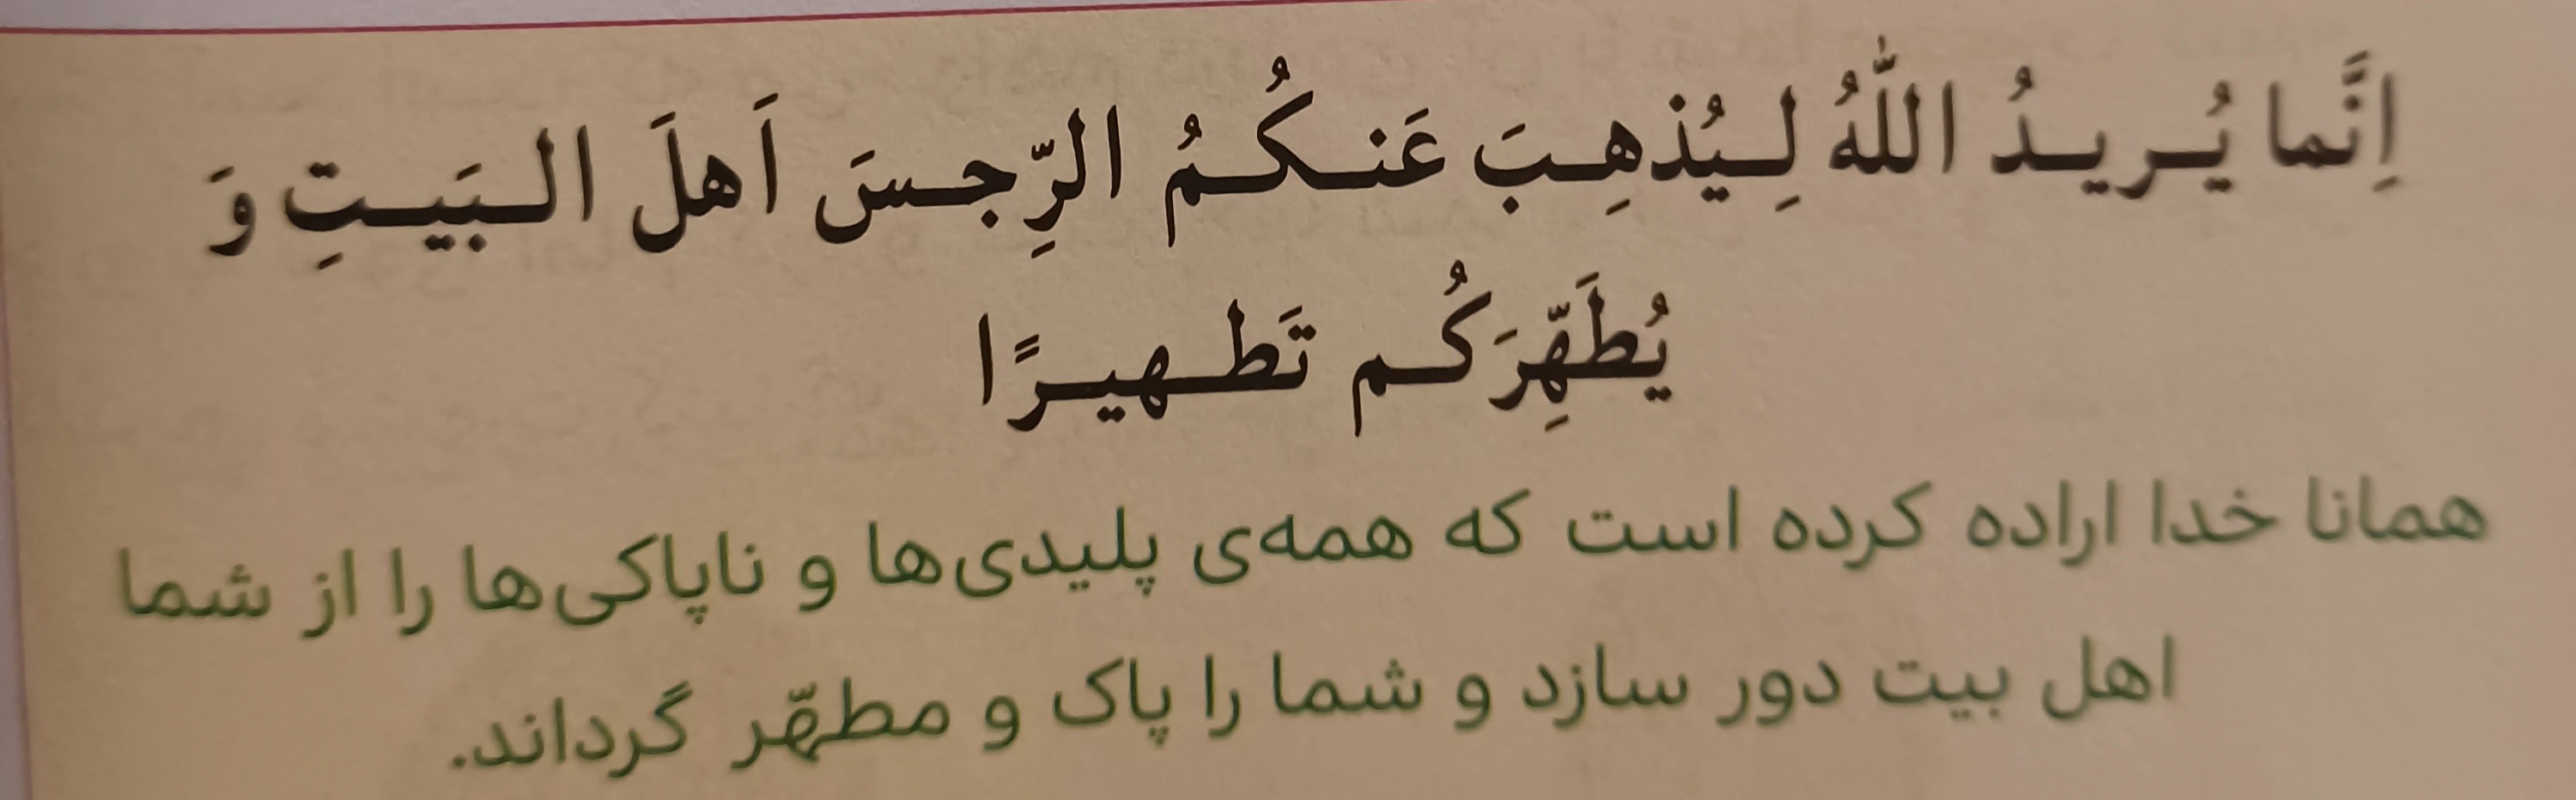 اِنَّما یُریدُ اللّٰهُ لِیُذهِبَ عَنکُمُ الرِّجسَ اَهلَ البَیتِ وَ
یُطَهِّرَکُم تَطهیرًا
همانا خدا اراده کرده است که همه‌ی پلیدی‌ها و ناپاکی‌ها را از شما
اهل بیت دور سازد و شما را پاک و مطهّر گرداند.